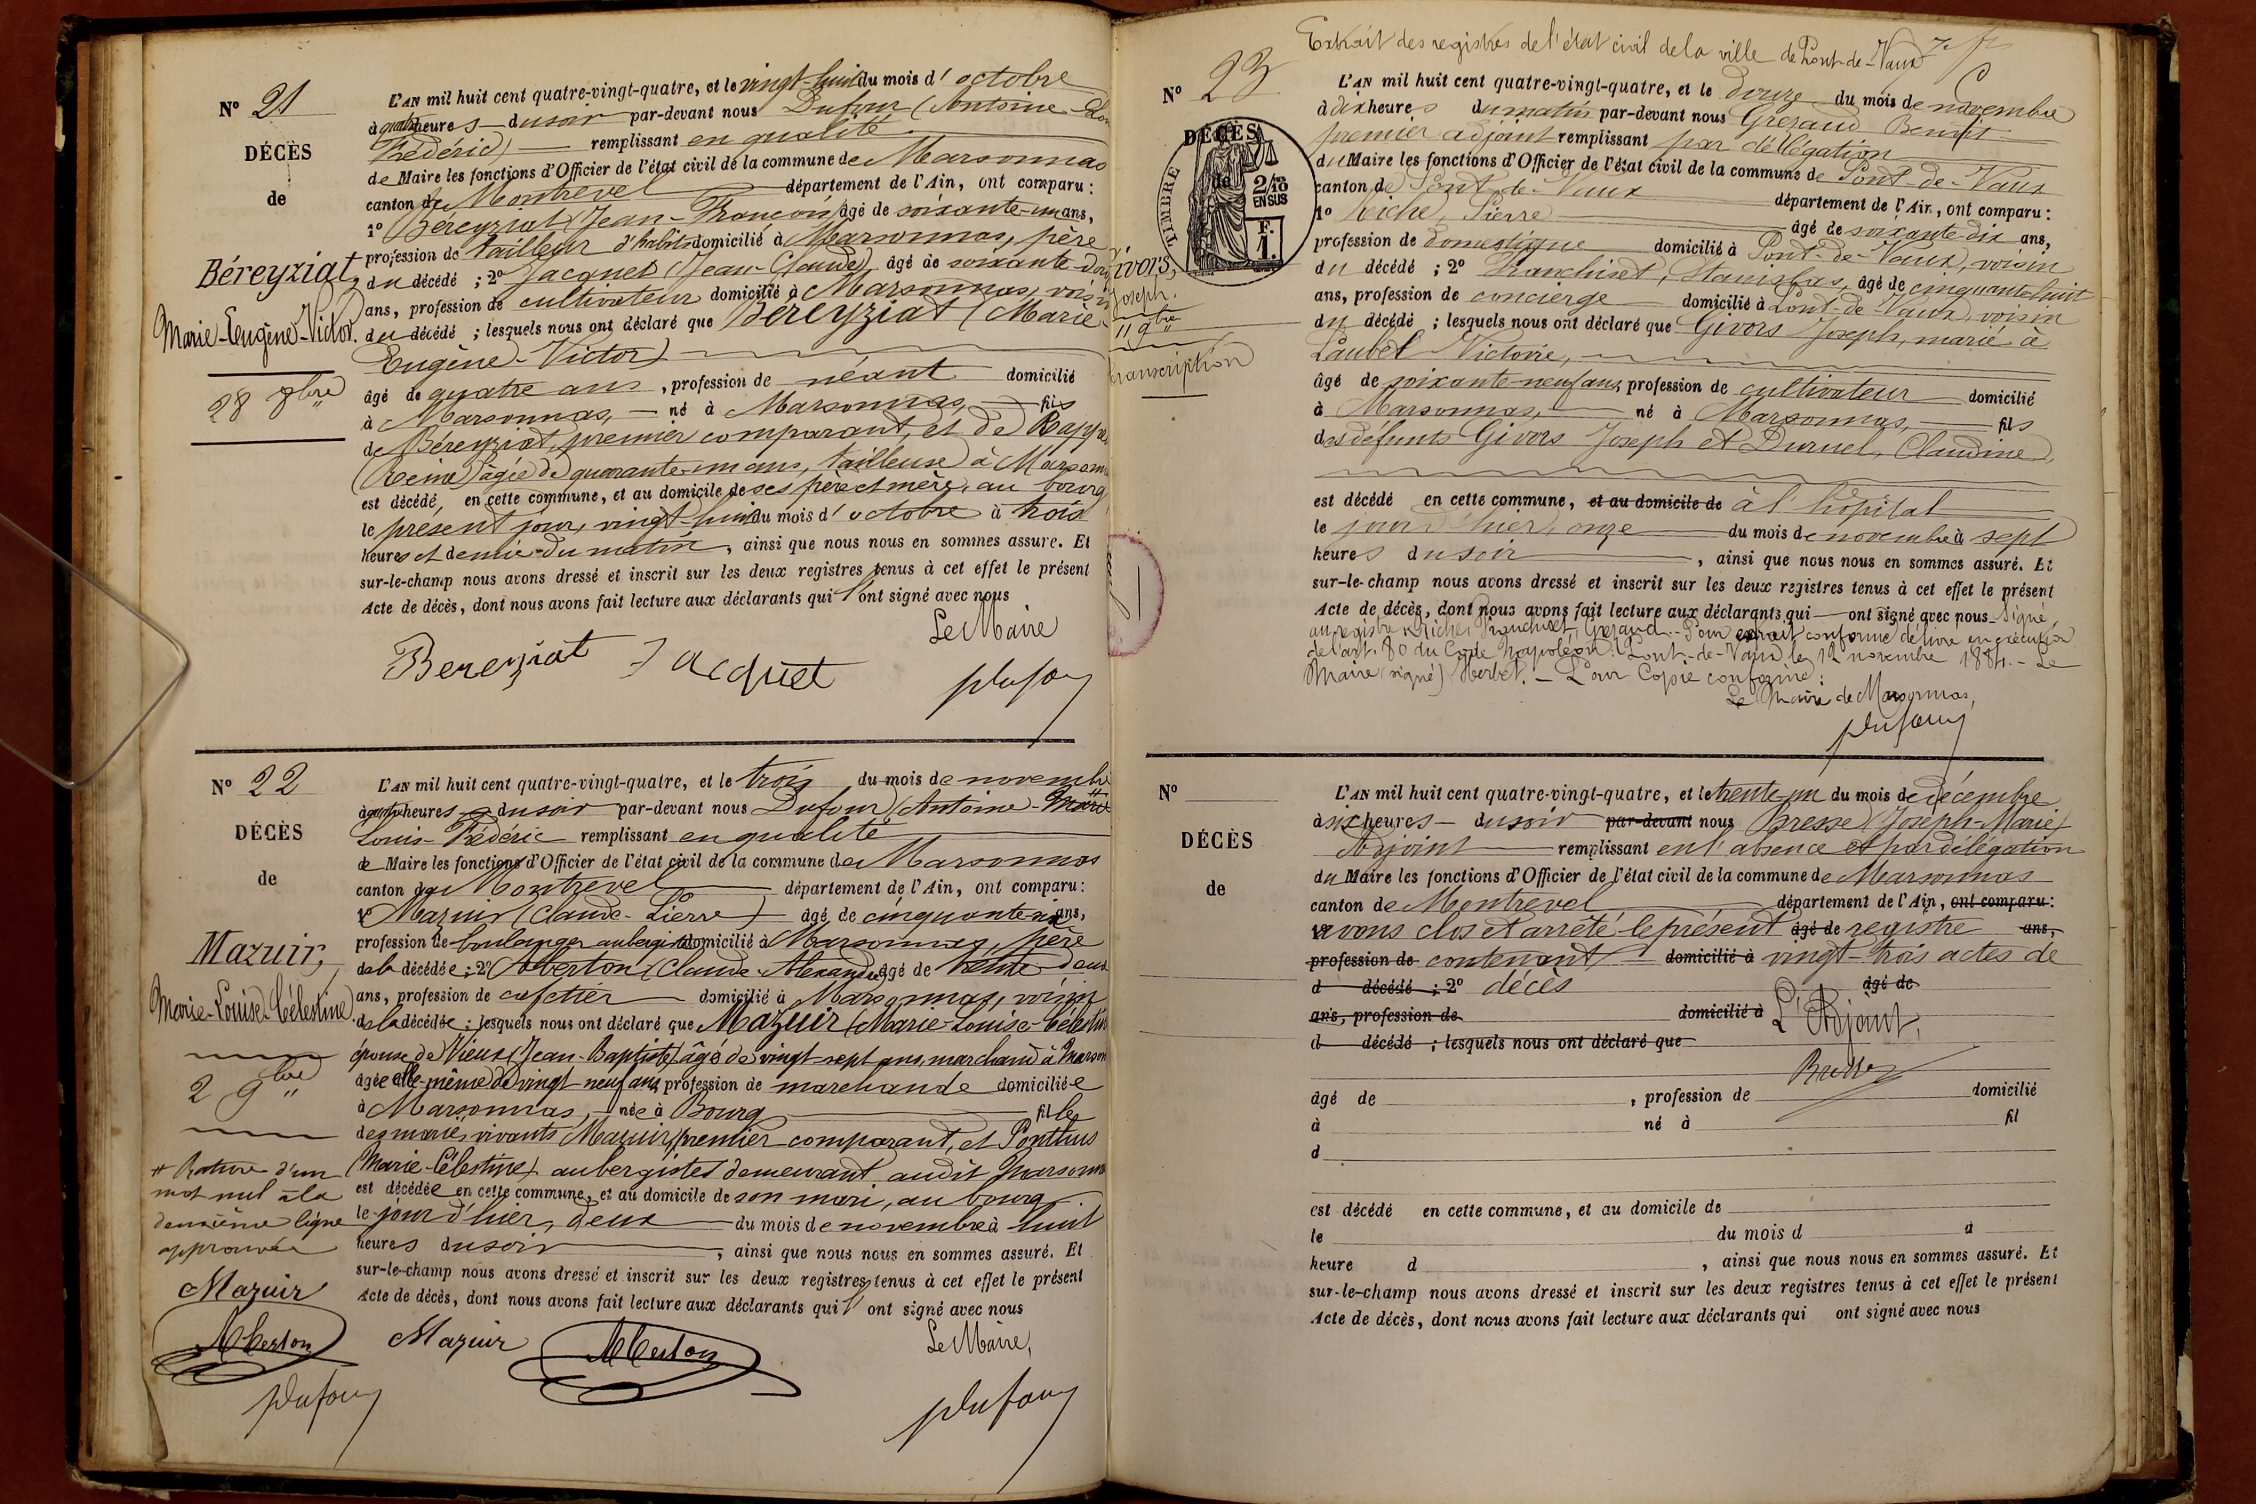 N° 21
DÉCÈS
de
Béreyziat,
Marie-Eugène-Victor.
28 8bre
L'AN mil huit cent quatre-vingt-quatre, et le vingt-huit du mois d'octobre
à quatre heures du soir par-devant nous Dufour (Antoine-
Frédéric) remplissant en qualité
de Maire les fonctions d'Officier de l'état civil de la commune de Marsonnas
canton de Montrevel département de l'Ain, ont comparu:
1° Béreyziat (Jean-François) âgé de soixante-un ans,
profession de tailleur d'habits domicilié à Marsonnas, père
du décédé ; 2° Jacquet (Jean-Claude) âgé de soixante-
ans, profession de cultivateur domicilié à Marsonnas, voisin
du décédé ; lesquels nous ont déclaré que Béreyziat (Marie-
Eugène-Victor)
âgé de quatre ans, profession de néant domicilié
à Marsonnas, né à Marsonnas, fils
de Béreyziat, premier comparant, et de
(Reine) âgée de quarante-un ans, tailleuse à Marsonnas
est décédé, en cette commune, et au domicile de ses père et mère, au bourg
le présent jour, vingt-huit du mois d'octobre à trois
heures et demie du matin, ainsi que nous nous en sommes assuré. Et
sur-le-champ nous avons dressé et inscrit sur les deux registres tenus à cet effet le présent
Acte de décès, dont nous avons fait lecture aux déclarants qui l'ont signé avec nous
Le Maire
Bereyziat Jacquet Dufour
N° 22
DÉCÈS
de
Mazuir,
Marie-Louise-Célestine.
2 9bre
# Rature d'un
mot nul à la
deuxième ligne
approuvée
Mazuir
Alberton
Dufour
L'AN mil huit cent quatre-vingt-quatre, et le trois du mois de novembre
à quatre heures du soir par-devant nous Dufour (Antoine-Marie #
Louis-Frédéric remplissant en qualité
de Maire les fonctions d'Officier de l'état civil de la commune de Marsonnas
canton de Montrevel département de l'Ain, ont comparu:
1° Mazuir (Claude-Pierre) âgé de cinquante-six ans,
profession de boulanger aubergiste domicilié à Marsonnas, père
de la décédée ; 2° Alberton (Claude-Alexandre) âgé de trente-deux
ans, profession de cafetier domicilié à Marsonnas, voisin
de la décédée ; lesquels nous ont déclaré que Mazuir (Marie-Louise-Célestine
épouse de Vieux (Jean-Baptiste) âgé de vingt-sept ans, marchand à Marsonnas
âgée elle-même de vingt-neuf ans, profession de marchande domiciliée
à Marsonnas, née à Bourg fille
des mariés vivants Mazuir, premier comparant, et Ponthus
(Marie-Célestine) aubergistes demeurant audit Marsonnas
est décédée en cette commune, et au domicile de son mari, au bourg
le jour d'hier, deux du mois de novembre à huit
heures du soir, ainsi que nous nous en sommes assuré. Et
sur-le-champ nous avons dressé et inscrit sur les deux registres tenus à cet effet le présent
Acte de décès, dont nous avons fait lecture aux déclarants qui l'ont signé avec nous
Le Maire,
Mazuir Alberton Dufour
Extrait des registres de l'état civil de la ville de Pont-de-Vaux
N° 23
DÉCÈS
de
TIMBRE
2/10 EN SUS
F. 1.
Givors,
Joseph.
11 9bre
Transcription
L'AN mil huit cent quatre-vingt-quatre, et le douze du mois de novembre
à dix heures du matin par-devant nous Greraud Benoit
premier adjoint remplissant par délégation
du Maire les fonctions d'Officier de l'état civil de la commune de Pont-de-Vaux
canton de Pont-de-Vaux département de l'Ain, ont comparu:
1° Piche, Pierre âgé de soixante-dix ans,
profession de domestique domicilié à Pont-de-Vaux, voisin
du décédé ; 2° Franchiset, Stanislas, âgé de cinquante-huit
ans, profession de concierge domicilié à Pont-de-Vaux, voisin
du décédé ; lesquels nous ont déclaré que Givors Joseph, marié à
Paubel Victoire,
âgé de soixante-neuf ans, profession de cultivateur domicilié
à Marsonnas, né à Marsonnas, fils
des défunts Givors Joseph et Duruel, Claudine,
est décédé en cette commune, et au domicile de à l'hôpital
le jour d'hier, onze du mois de novembre à sept
heures du soir, ainsi que nous nous en sommes assuré. Et
sur-le-champ nous avons dressé et inscrit sur les deux registres tenus à cet effet le présent
Acte de décès, dont nous avons fait lecture aux déclarants qui ont signé avec nous Signé,
au registre Piche, Franchiset, Greraud. - Pour extrait conforme délivré en exécution
de l'art. 80 du Code Napoléon. Pont-de-Vaux, le 12 novembre 1884. - Le
Maire (signé) Herbet. - Pour Copie conforme:
Le Maire de Marsonnas,
Dufour
N°
DÉCÈS
de
L'AN mil huit cent quatre-vingt-quatre, et le trente-un du mois de décembre
à six heures du soir par-devant nous Bresse (Joseph-Marie)
Adjoint remplissant en l'absence et par délégation
du Maire les fonctions d'Officier de l'état civil de la commune de Marsonnas
canton de Montrevel département de l'Ain, ont comparu:
1° avons clos et arrêté le présent âgé de registre ans,
profession de contenant domicilié à vingt-trois actes de
d décédé ; 2° décès âgé de
ans, profession de domicilié à L'Adjoint,
d décédé ; lesquels nous ont déclaré que
Bresse
âgé de , profession de domicilié
à né à fil
d
est décédé en cette commune, et au domicile de
le du mois d à
heure d , ainsi que nous nous en sommes assuré. Et
sur-le-champ nous avons dressé et inscrit sur les deux registres tenus à cet effet le présent
Acte de décès, dont nous avons fait lecture aux déclarants qui ont signé avec nous